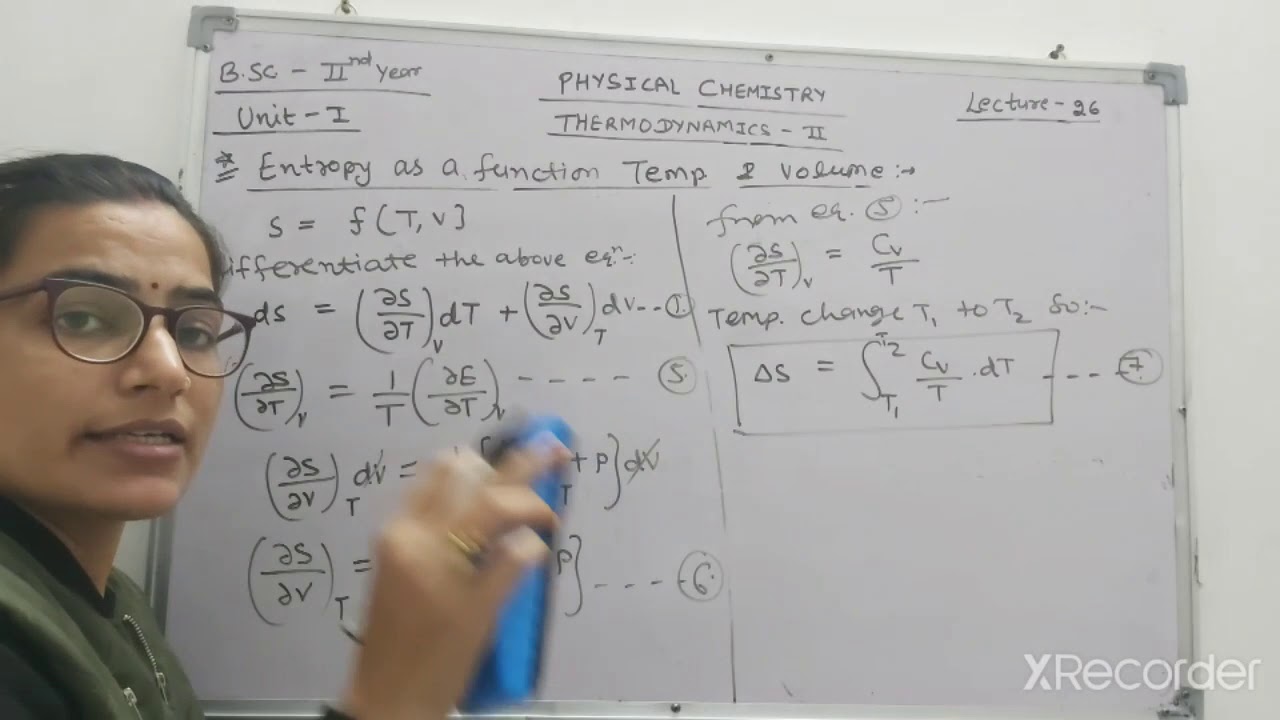 B.Sc. - IInd Year
Unit - I
PHYSICAL CHEMISTRY
THERMODYNAMICS - II
Lecture - 26
* Entropy as a function Temp & Volume :→
S = f(T, V)
ifferentiate the above eqn :-
ds = (∂S/∂T)V dT + (∂S/∂V)T dV --- ①
(∂S/∂T)V = 1/T (∂E/∂T)V ---- ⑤
(∂S/∂V)T dV = + P} dV
(∂S/∂V)T = P} ---- ⑥
from eq. ⑤ :-
(∂S/∂T)V = CV/T
Temp. change T1 to T2 so :-
ΔS = ∫T1T2 CV/T . dT --- ⑦
XRecorder